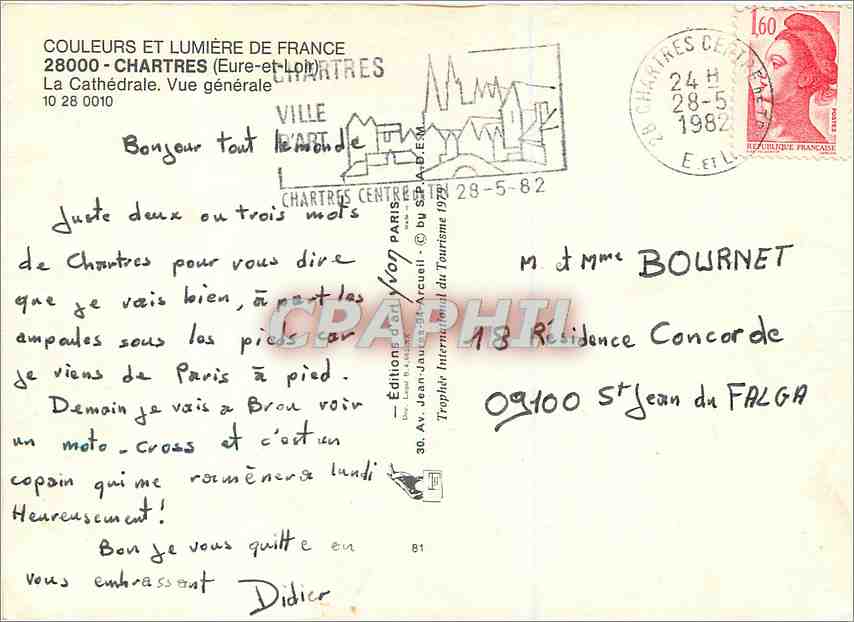 COULEURS ET LUMIÈRE DE FRANCE
28000 - CHARTRES (Eure-et-Loir)
La Cathédrale. Vue générale
10 28 0010
CHARTRES
VILLE
D'ART
CHARTRES CENTRE 28-5-82
28 CHARTRES CENTRE
24 H
28-5
1982
E. ET L.
1,60
POSTES
REPUBLIQUE FRANÇAISE
Bonjour tout le monde
Juste deux ou trois mots
de Chartres pour vous dire
que je vais bien, à part les
ampoules sous les pieds car
je viens de Paris à pied.
Demain je vais a Brou voir
un moto-cross et c'est un
copain qui me ramènera lundi
Heureusement!
Bon je vous quitte en
vous embrassant
Didier
— Éditions d'art Yvon PARIS
30. Av. Jean-Jaurès-94-Arcueil - © by S.P.A.D.E.M
Trophée International du Tourisme 1979
81
M. et Mme BOURNET
18 Résidence Concorde
09100 St Jean du FALGA
CPAPHIL